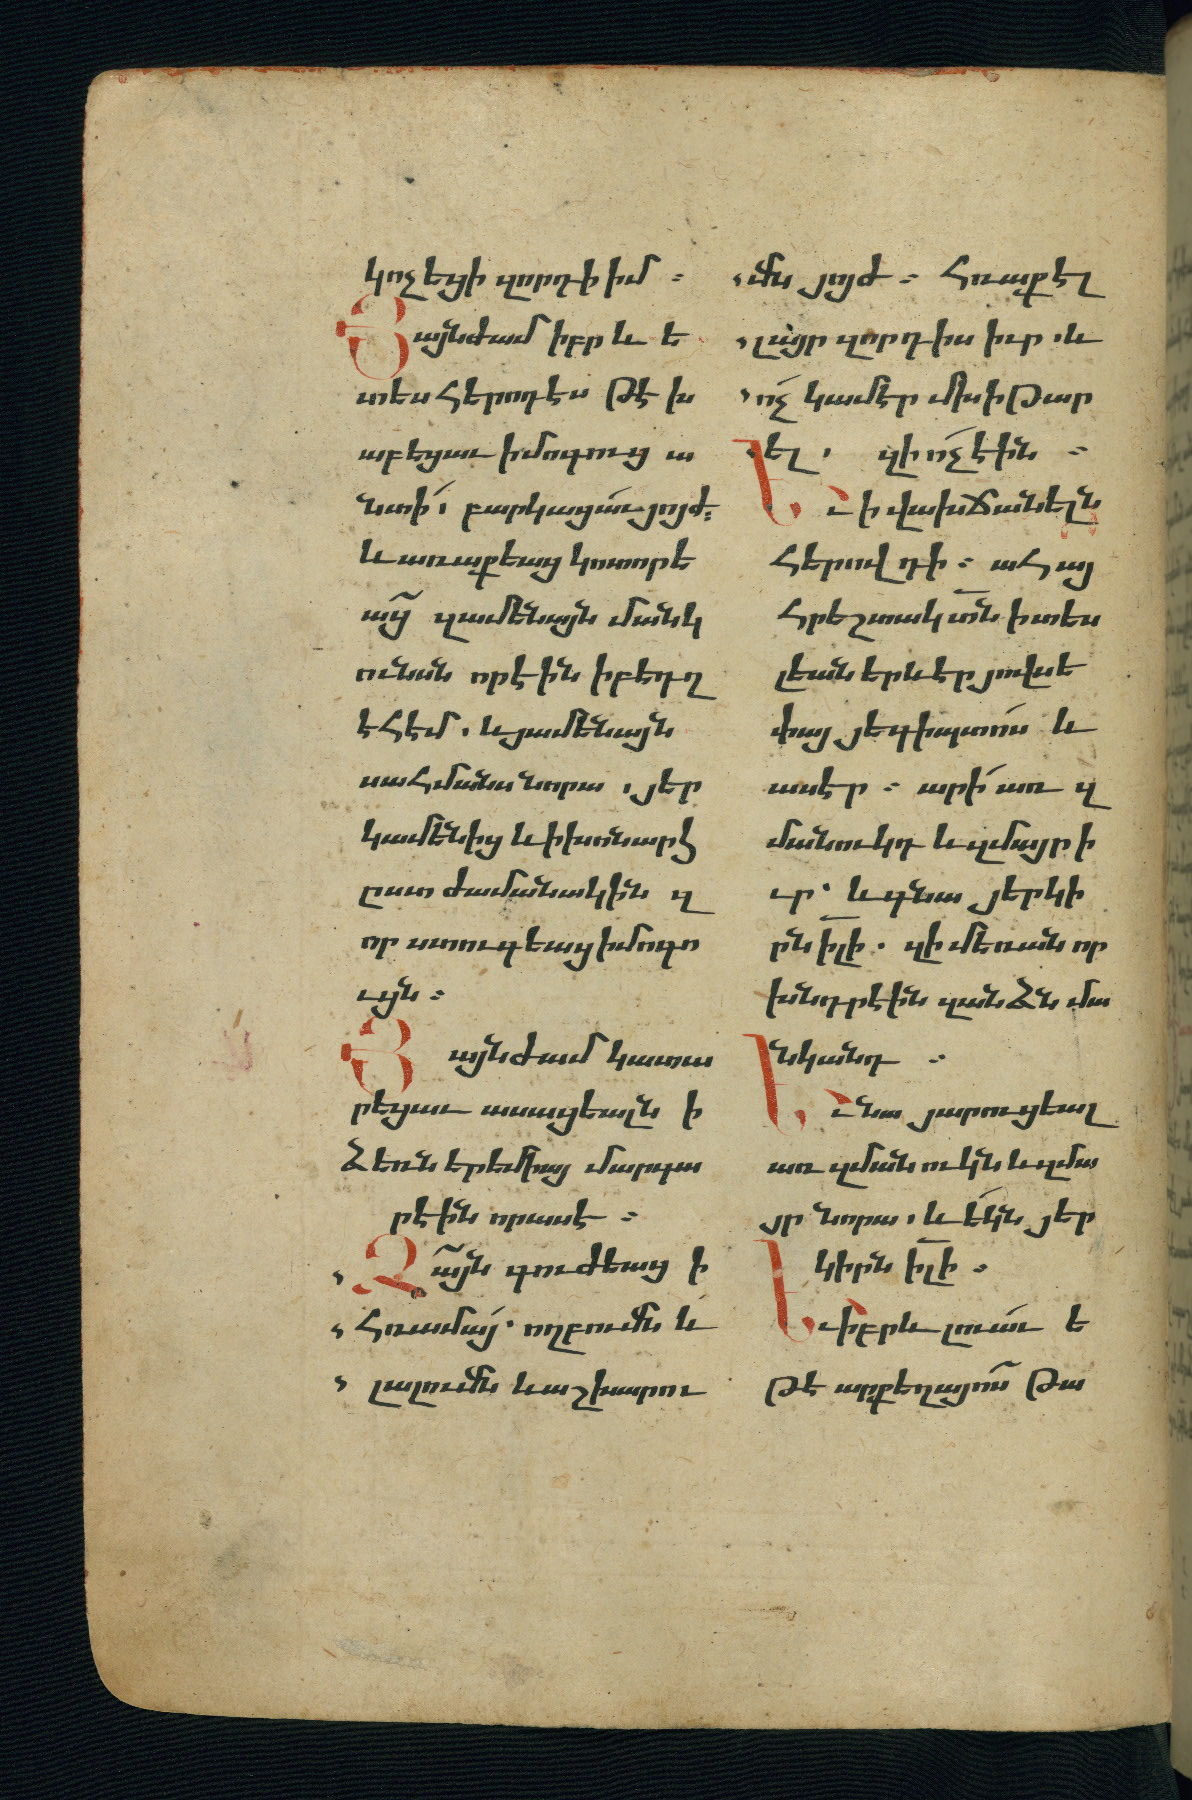 կոչեցի զորդի իմ ։
Յայնժամ իբր և ե
տես Հերովդէս թէ խ
աբեցաւ ի մոգուց ա
նտի՛ բարկացաւ յոյժ։
և առաքեաց կոտորե
աց զամենայն մանկ
ունան որ էին ի բեդղ
էհէմ . և յամենայն
սահմանս նորա , յեր
կամենից և ի խոնարհ
ըստ ժամանակին զ
որ ստուգեաց ի մոգո
ւցն ։
Յայնժամ կատա
րեցաւ ասացեալն ի
ձեռն երեմիայ մարգա
րէին որ ասէ ։
Ձայն գուժեաց ի
Հռամայ . ողբումն և
լալումն և աշխարու
մն յոյժ ։ Հռաքէլ
լայր զորդիս իւր . և
ոչ կամէր մխիթար
ել . զի ոչ էին ։
Եւ ի վախճանելն
Հերովդի ։ ահայ
Հրեշտակ տն ի տես
լեան երևէր յովսե
փայ յեգիպտոս և
ասէր ։ արի՛ առ զ
մանուկդ և զմայր ի
ւր . և գնա յերկի
րն իլի . զի մեռան որ
խնդրէին զանձն մա
նկանդ ։
Եւ նա յարուցեալ
առ զմանուկն և զմա
յր նորա . և եկն յեր
կիրն իլի ։
Եւ իբրև լուաւ ե
թէ արքեղայոս թա